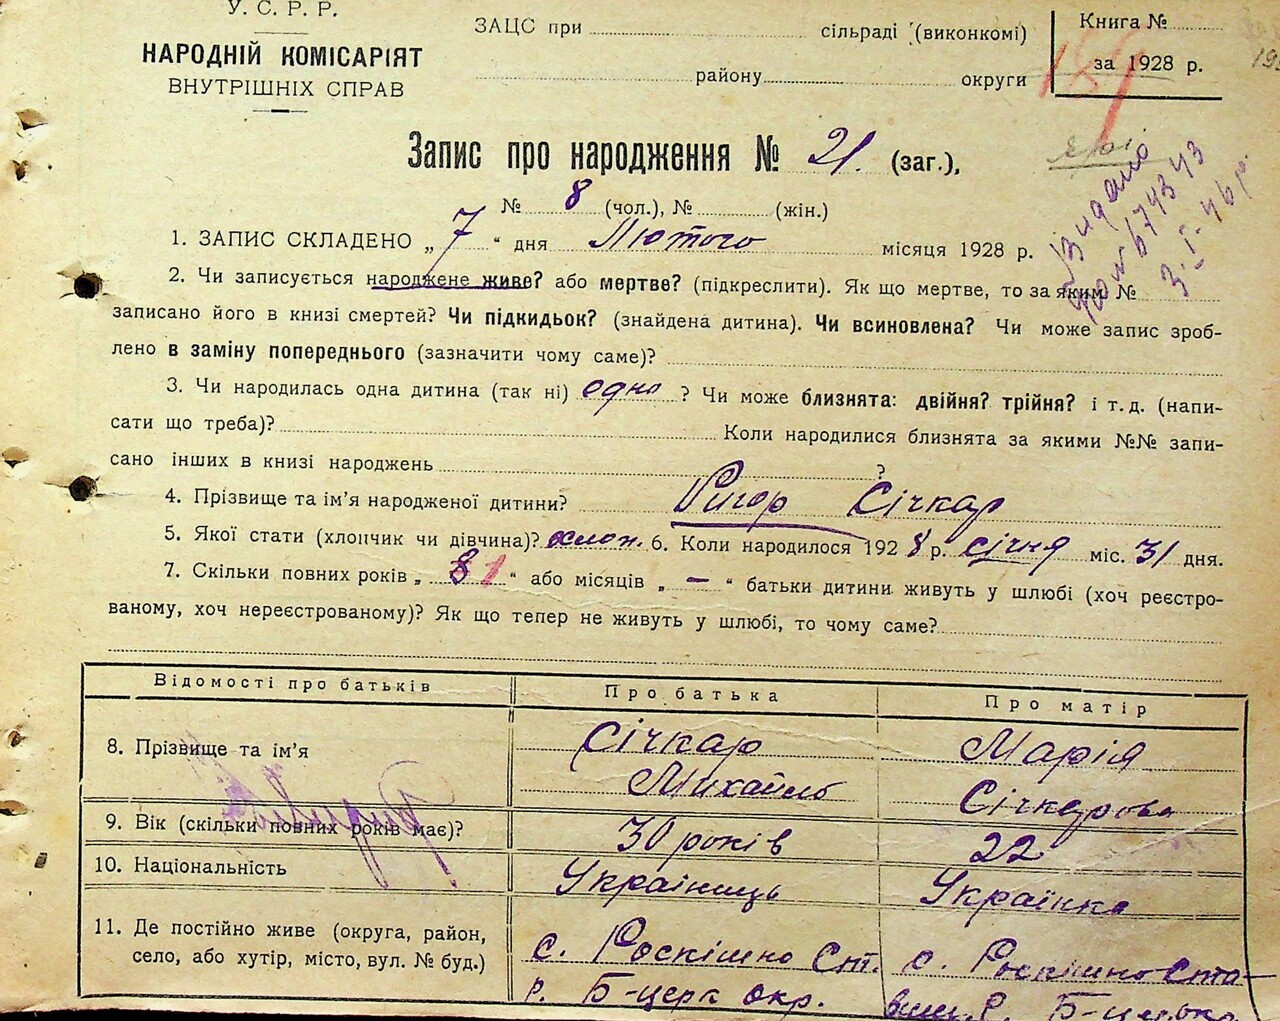 У. С. Р. Р.
НАРОДНІЙ КОМІСАРІЯТ
ВНУТРІШНІХ СПРАВ
ЗАЦС при сільраді (виконкомі)
району округи
Книга №
за 1928 р.
Запис про народження № 21. (заг.),
№ 8 (чол.), № (жін.)
Видано
3.I.46 р.
1. ЗАПИС СКЛАДЕНО „ 7 “ дня Лютого місяця 1928 р.
2. Чи записується народжене живе? або мертве? (підкреслити). Як що мертве, то за яким №
записано його в книзі смертей? Чи підкидьок? (знайдена дитина). Чи всиновлена? Чи може запис зроб-
лено в заміну попереднього (зазначити чому саме)?
3. Чи народилась одна дитина (так ні) одно ? Чи може близнята: двійня? трійня? і т. д. (напи-
сати що треба)? Коли народилися близнята за якими №№ запи-
сано інших в книзі народжень ?
4. Прізвище та ім’я народженої дитини? Ригор Січкар
5. Якої стати (хлопчик чи дівчина)? хлоп. 6. Коли народилося 1928 р. січня міс. 31 дня.
7. Скільки повних років „ “ або місяців „ – “ батьки дитини живуть у шлюбі (хоч реєстро-
ваному, хоч нереєстрованому)? Як що тепер не живуть у шлюбі, то чому саме?
Відомості про батьків Про батька Про матір
8. Прізвище та ім’я Січкар Михайло Марія Січкарова
9. Вік (скільки повних років має)? 30 років 22
10. Національність Українець Українка
11. Де постійно живе (округа, район,
село, або хутір, місто, вул. № буд.)
с. Роскішно Ст.
р. Б-церк окр.
с. Роскішно Ста-